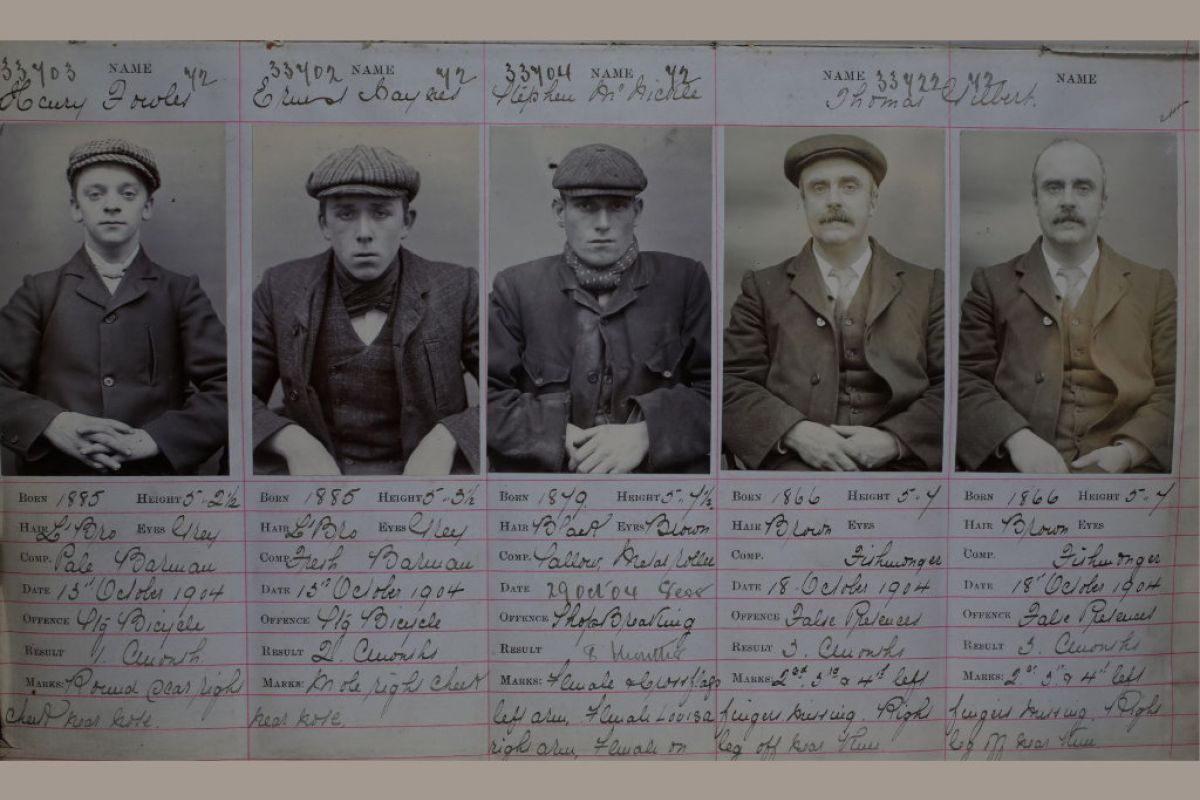 33403 NAME 42
Henry Fowles
Born 1885 Height 5-2½
Hair L'Bro Eyes Grey
Comp. Pale Barman
Date 13th October 1904
Offence S/g Bicycle
Result 1. month.
Marks: Round scar right
cheek near nose.
33402 NAME 42
Ernest Haynes
Born 1885 Height 5-3½
Hair L'Bro Eyes Grey
Comp. Fresh Barman
Date 13th October 1904
Offence S/g Bicycle
Result 2. months
Marks: Mole right cheek
near nose
33404 NAME 42
Stephen McNickle
Born 1879 Height 5-4½
Hair Black Eyes Brown
Comp. Sallow Metal roller
Date 29 Oct 04
Offence Shop Breaking
Result 8 months
Marks: Female & Cross flags
left arm, Female Louisa
right arm, Female on
NAME 33422 42
Thomas Gilbert.
Born 1866 Height 5-4
Hair Brown Eyes
Comp. Fishmonger
Date 18 October 1904
Offence False Pretences
Result 3. months
Marks: 2nd 3rd & 4th left
fingers missing. Right
leg off near knee
NAME
Born 1866 Height 5-4
Hair Brown Eyes
Comp. Fishmonger
Date 18th October 1904
Offence False Pretences
Result 3. months
Marks: 2nd 3rd & 4th left
fingers missing. Right
leg off near knee